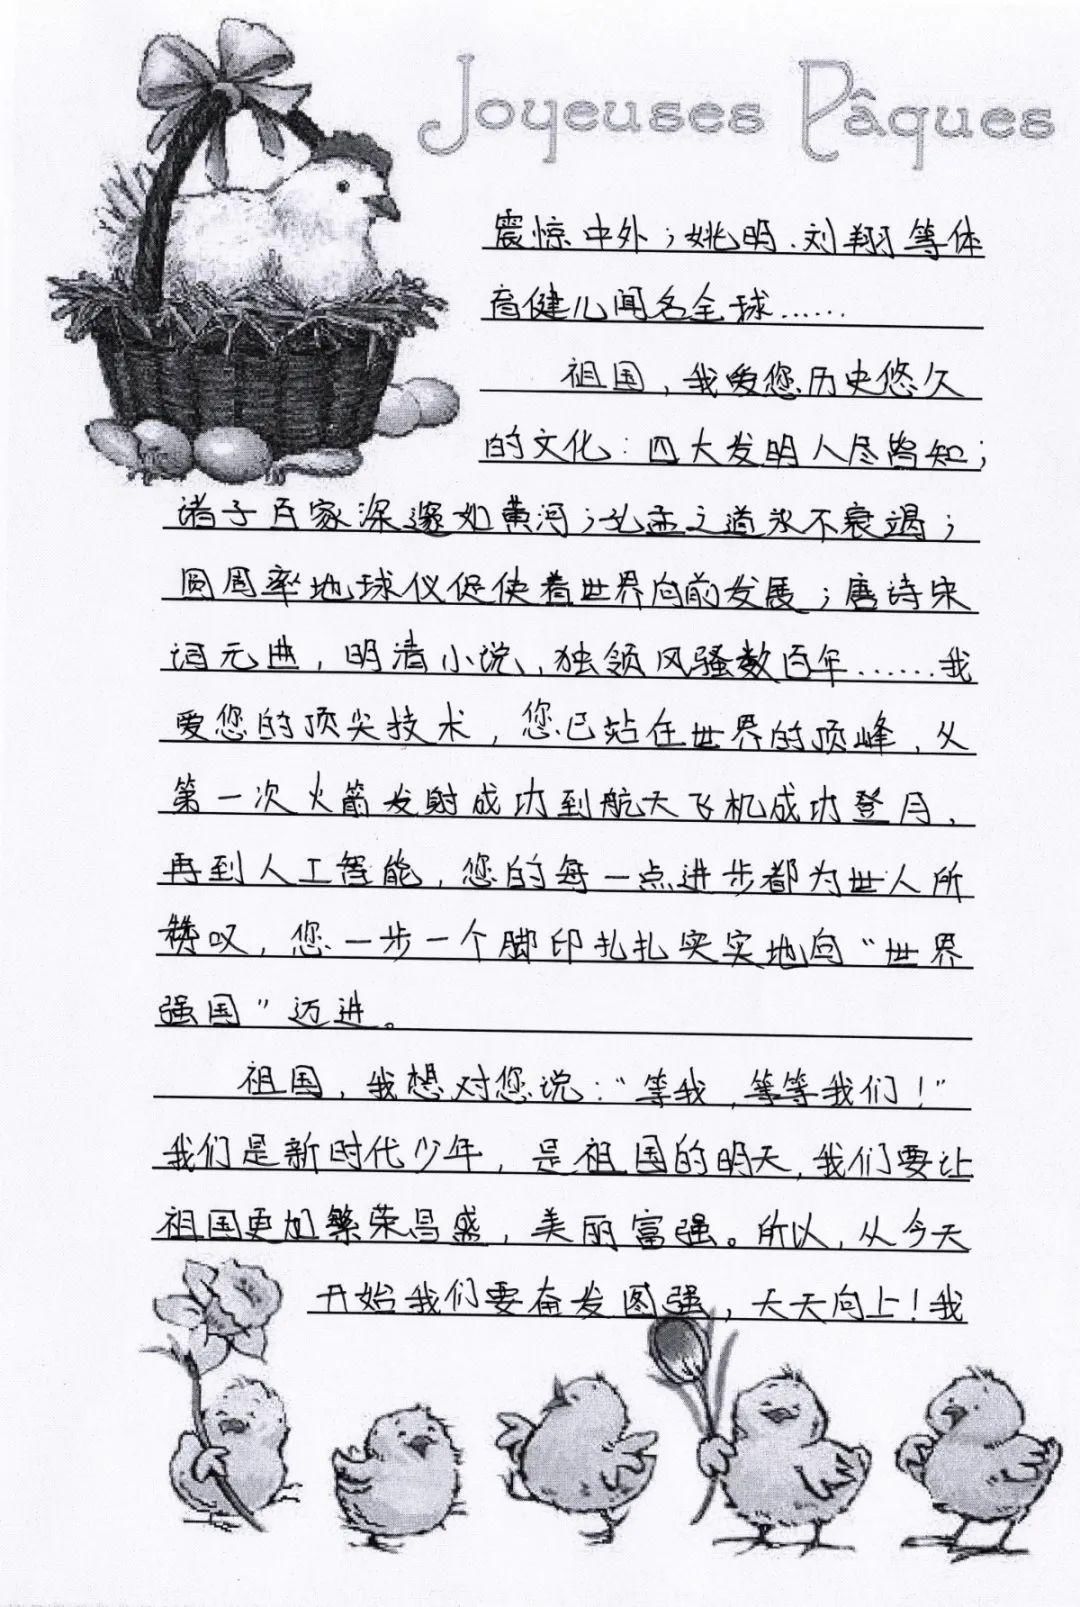 Joyeuses Pâques
震惊中外；姚明、刘翔等体
育健儿闻名全球……
祖国，我爱您历史悠久
的文化：四大发明人尽皆知；
诸子百家深邃如黄河；孔孟之道永不衰竭；
圆周率地球仪促使着世界向前发展；唐诗宋
词元曲，明清小说，独领风骚数百年……我
爱您的顶尖技术，您已站在世界的顶峰，从
第一次火箭发射成功到航天飞机成功登月，
再到人工智能，您的每一点进步都为世人所
赞叹，您一步一个脚印扎扎实实地向“世界
强国”迈进。
祖国，我想对您说：“等我，等等我们！”
我们是新时代少年，是祖国的明天，我们要让
祖国更加繁荣昌盛，美丽富强。所以，从今天
开始我们要奋发图强，天天向上！我